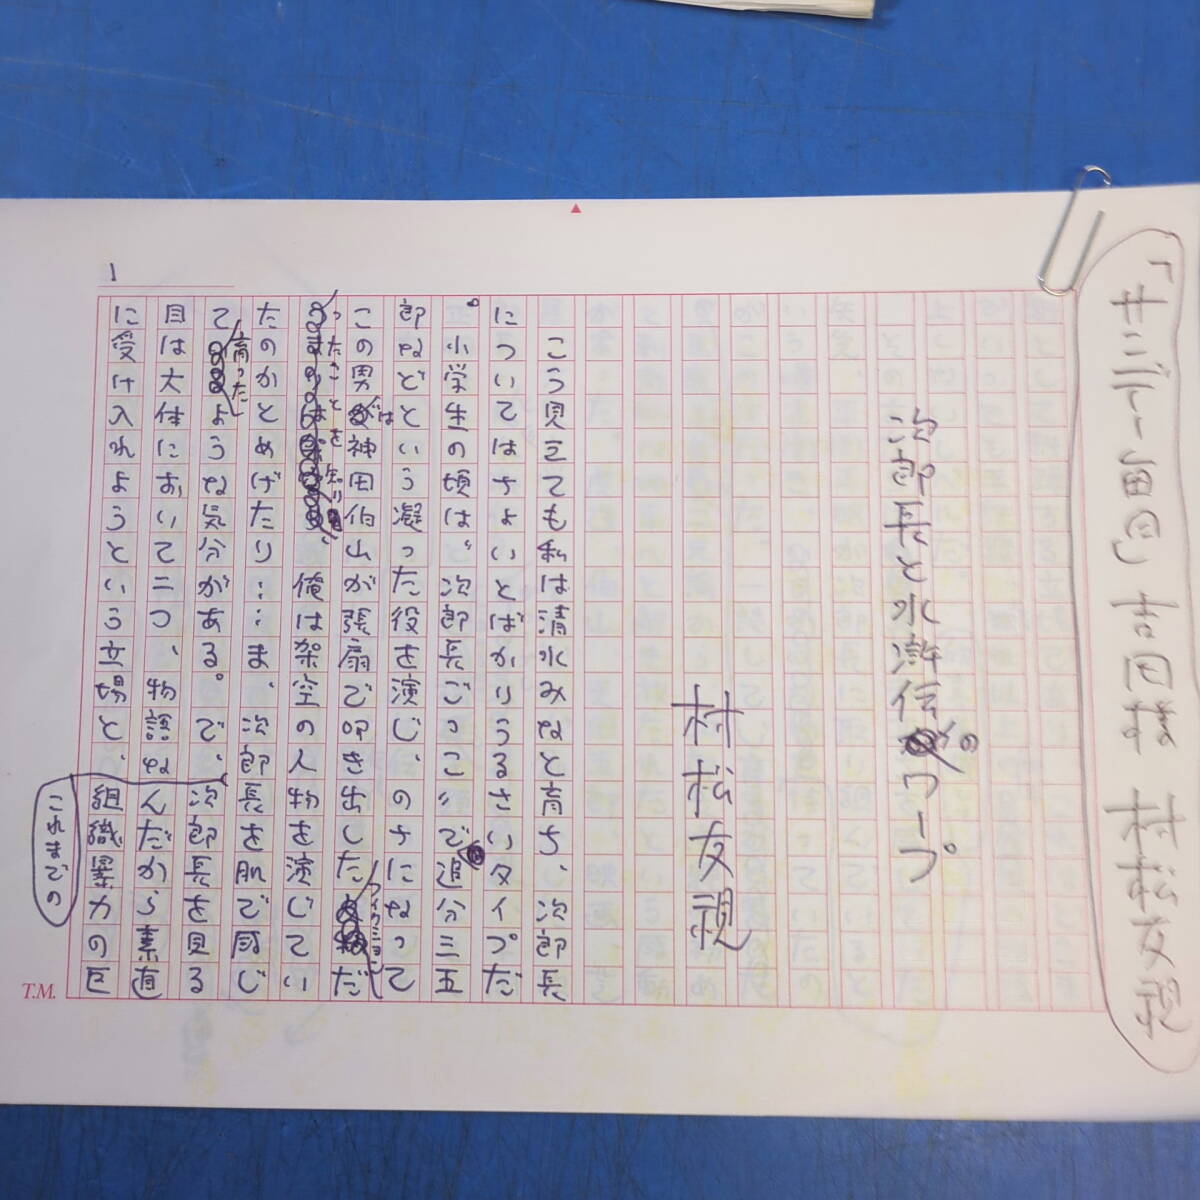 「サンデー毎日」吉田様 村松友視
次郎長と水滸伝のワープ
村松友視
こう見えても私は清水みなと育ち、次郎長
についてはちょいとばかりうるさいタイプだ
。小学生の頃は〝次郎長ごっこ〟で追分三五
郎などという凝った役を演じ、のちになって
この男は神田伯山が張扇で叩き出したフィクションだ
ったことを知り、俺は架空の人物を演じてい
たのかとめげたり……ま、次郎長を肌で感じ
て育ったような気分がある。で、次郎長を見る
目は大体において二つ、物語なんだから素直
に受け入れようという立場と、これまでの組織暴力の巨
1
T.M.